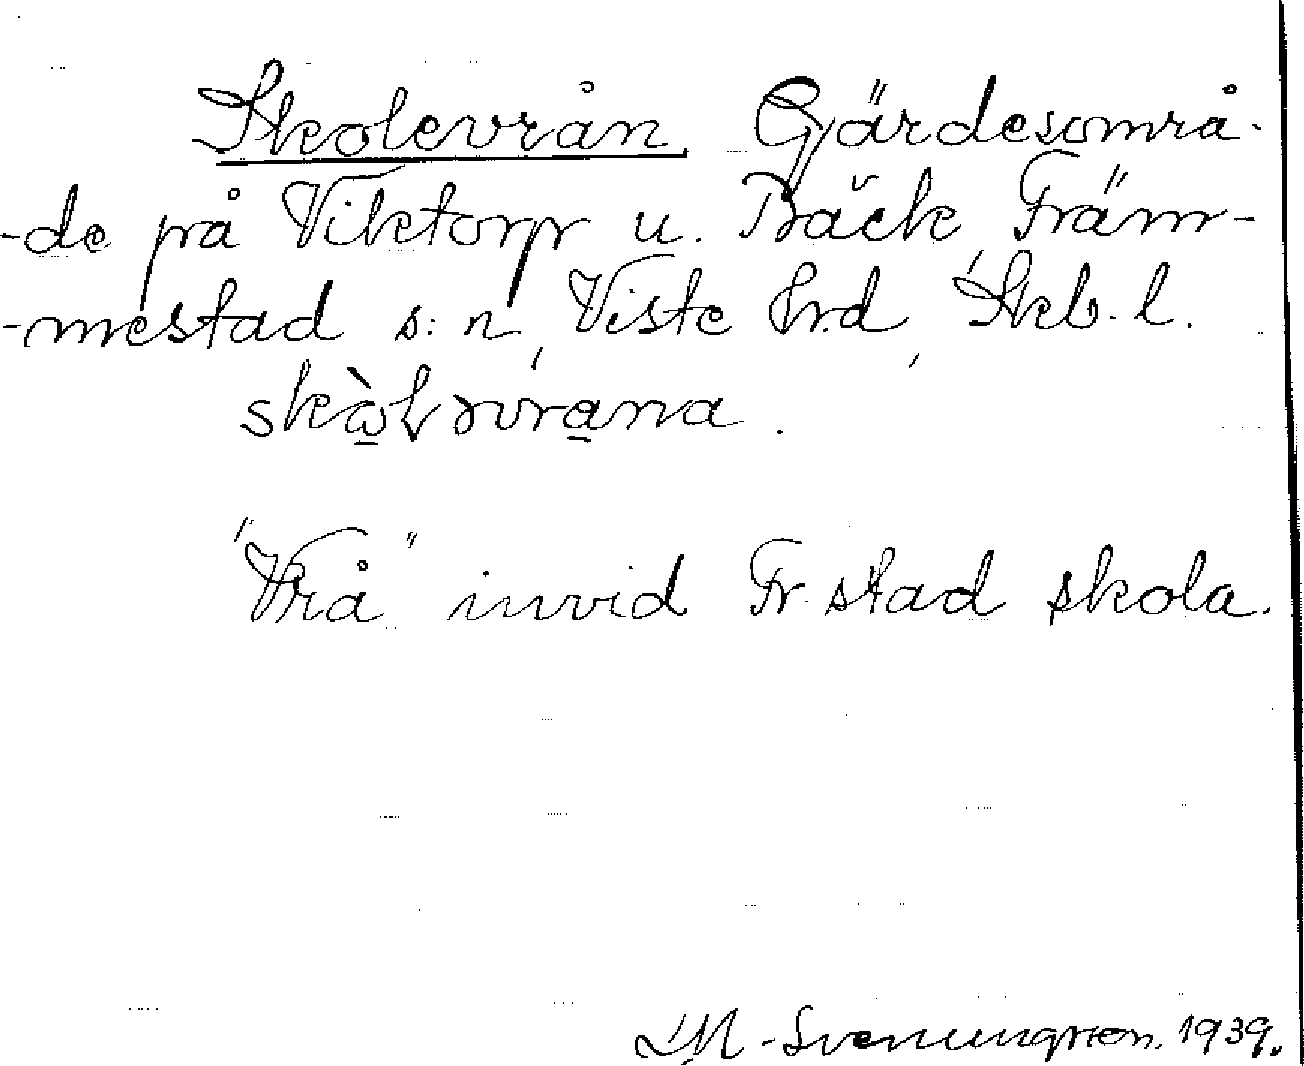 Skolevrån, Gärdesområ-
-de på Viktorp u. Bäck, Främ-
-mestad s:n, Viste hrd, Skb. l.
"Vrå" invid Fr. stad skola.
Svenungsson. 1939.